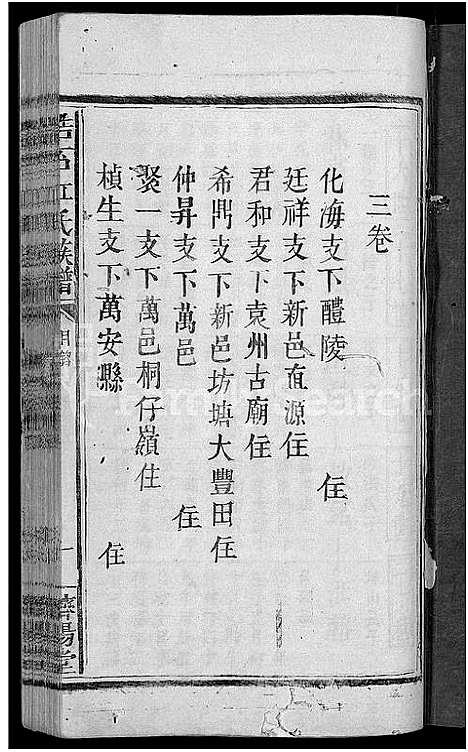 三卷
化海支下醴陵 住
廷祥支下新邑直源住
君和支下袁州古廟住
希鼎支下新邑坊塘大豐田住
仲昇支下萬邑 住
聚一支下萬邑桐仔嶺住
楨生支下萬安縣 住
江氏族譜
一
濟陽堂